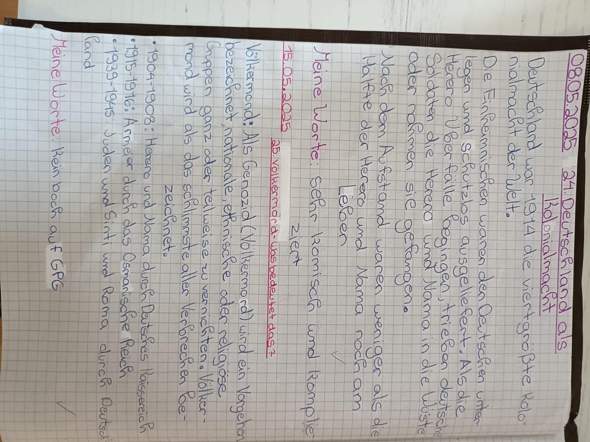 08.05.2025 24. Deutschland als
Kolonialmacht
Deutschland war 1914 die viertgrößte Kolo
nialmacht der Welt.
Die Einheimischen waren den Deutschen unter
legen und schutzlos ausgeliefert. Als die
Herero Überfälle begingen, trieben deutsche
Soldaten die Herero und Nama in die Wüste
oder nahmen sie gefangen.
Nach dem Aufstand waren weniger als die
Hälfte der Herero und Nama noch am
Leben
Meine Worte: Sehr komisch und komplie
ziert
15.05.2025 25. Völkermord - was bedeutet das?
Völkermord: Als Genozid (Völkermord) wird ein Vorgehen
bezeichnet, nationale, ethnische oder religiöse
Gruppen ganz oder teilweise zu vernichten. Völker-
mord wird als das schlimmste aller Verbrechen be-
zeichnet.
• 1904-1908: Herero und Nama durch Deutsches Kaiserreich
• 1915-1916: Armenier durch das Osmanische Reich
• 1939-1945 Juden und Sinti und Roma durch Deutsch
land
Meine Worte: Kein bock auf GPG